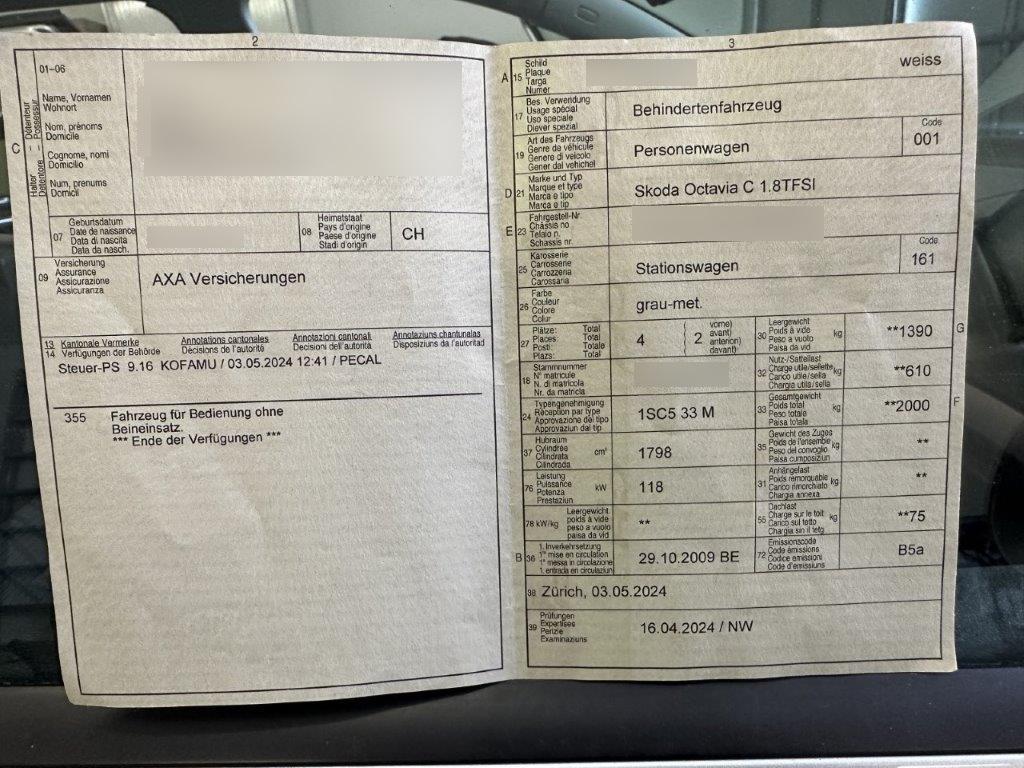 2
C
Halter Détenteur
Detentore Possessur
01-06
Name, Vornamen
Wohnort
Nom, prénoms
Domicile
Cognome, nomi
Domicilio
Num, prenums
Domicil
07
Geburtsdatum
Date de naissance
Data di nascita
Data da nasch.
08
Heimatstaat
Pays d'origine
Paese d'origine
Stadi d'origin
CH
09
Versicherung
Assurance
Assicurazione
Assicuranza
AXA Versicherungen
13 Kantonale Vermerke Annotations cantonales Annotazioni cantonali Annotaziuns chantunalas
14 Verfügungen der Behörde Décisions de l'autorité Decisioni dell'autorità Disposiziuns da l'autoritad
Steuer-PS 9.16 KOFAMU / 03.05.2024 12:41 / PECAL
355 Fahrzeug für Bedienung ohne
Beineinsatz.
*** Ende der Verfügungen ***
3
A 15
Schild
Plaque
Targa
Numer
weiss
17
Bes. Verwendung
Usage spécial
Uso speciale
Diever spezial
Behindertenfahrzeug
19
Art des Fahrzeugs
Genre de véhicule
Genere di veicolo
Gener dal vehichel
Personenwagen
Code
001
D 21
Marke und Typ
Marque et type
Marca e tipo
Marca e tip
Skoda Octavia C 1.8TFSI
E 23
Fahrgestell-Nr.
Châssis no
Telaio n.
Schassis nr.
25
Karosserie
Carrosserie
Carrozzeria
Carossaria
Stationswagen
Code
161
26
Farbe
Couleur
Colore
Colur
grau-met.
27
Plätze: Total
Places: Total
Posti: Totale
Plazs: Total
4 ( 2
vorne)
avant)
anteriori)
davant)
30
Leergewicht
Poids à vide
Peso a vuoto
Paisa da vid
kg
**1390
G
18
Stammnummer
N° matricule
N. di matricola
Nr. da matricla
32
Nutz-/Sattellast
Charge utile/sellette
Carico utile/sella
Chargia utila/sella
kg
**610
24
Typengenehmigung
Réception par type
Approvazione del tipo
Approvaziun dal tip
1SC5 33 M
33
Gesamtgewicht
Poids total
Peso totale
Paisa totala
kg
**2000
F
37
Hubraum
Cylindrée
Cilindrata
Cilindrada
cm³
1798
35
Gewicht des Zuges
Poids de l'ensemble
Peso del convoglio
Paisa cumposiziun
kg
**
76
Leistung
Puissance
Potenza
Prestaziun
kW
118
31
Anhängelast
Poids remorquable
Carico rimorchiato
Chargia annexa
kg
**
78 kW/kg
Leergewicht
poids à vide
peso a vuoto
paisa da vid
**
55
Dachlast
Charge sur le toit
Carico sul tetto
Chargia sin il tetg
kg
**75
B 36
1. Inverkehrsetzung
1re mise en circulation
1a messa in circolazione
1. entrada en circulaziun
29.10.2009 BE
72
Emissionscode
Code émissions
Codice emissioni
Code d'emissiuns
B5a
38 Zürich, 03.05.2024
39
Prüfungen
Expertises
Perizie
Examinaziuns
16.04.2024 / NW